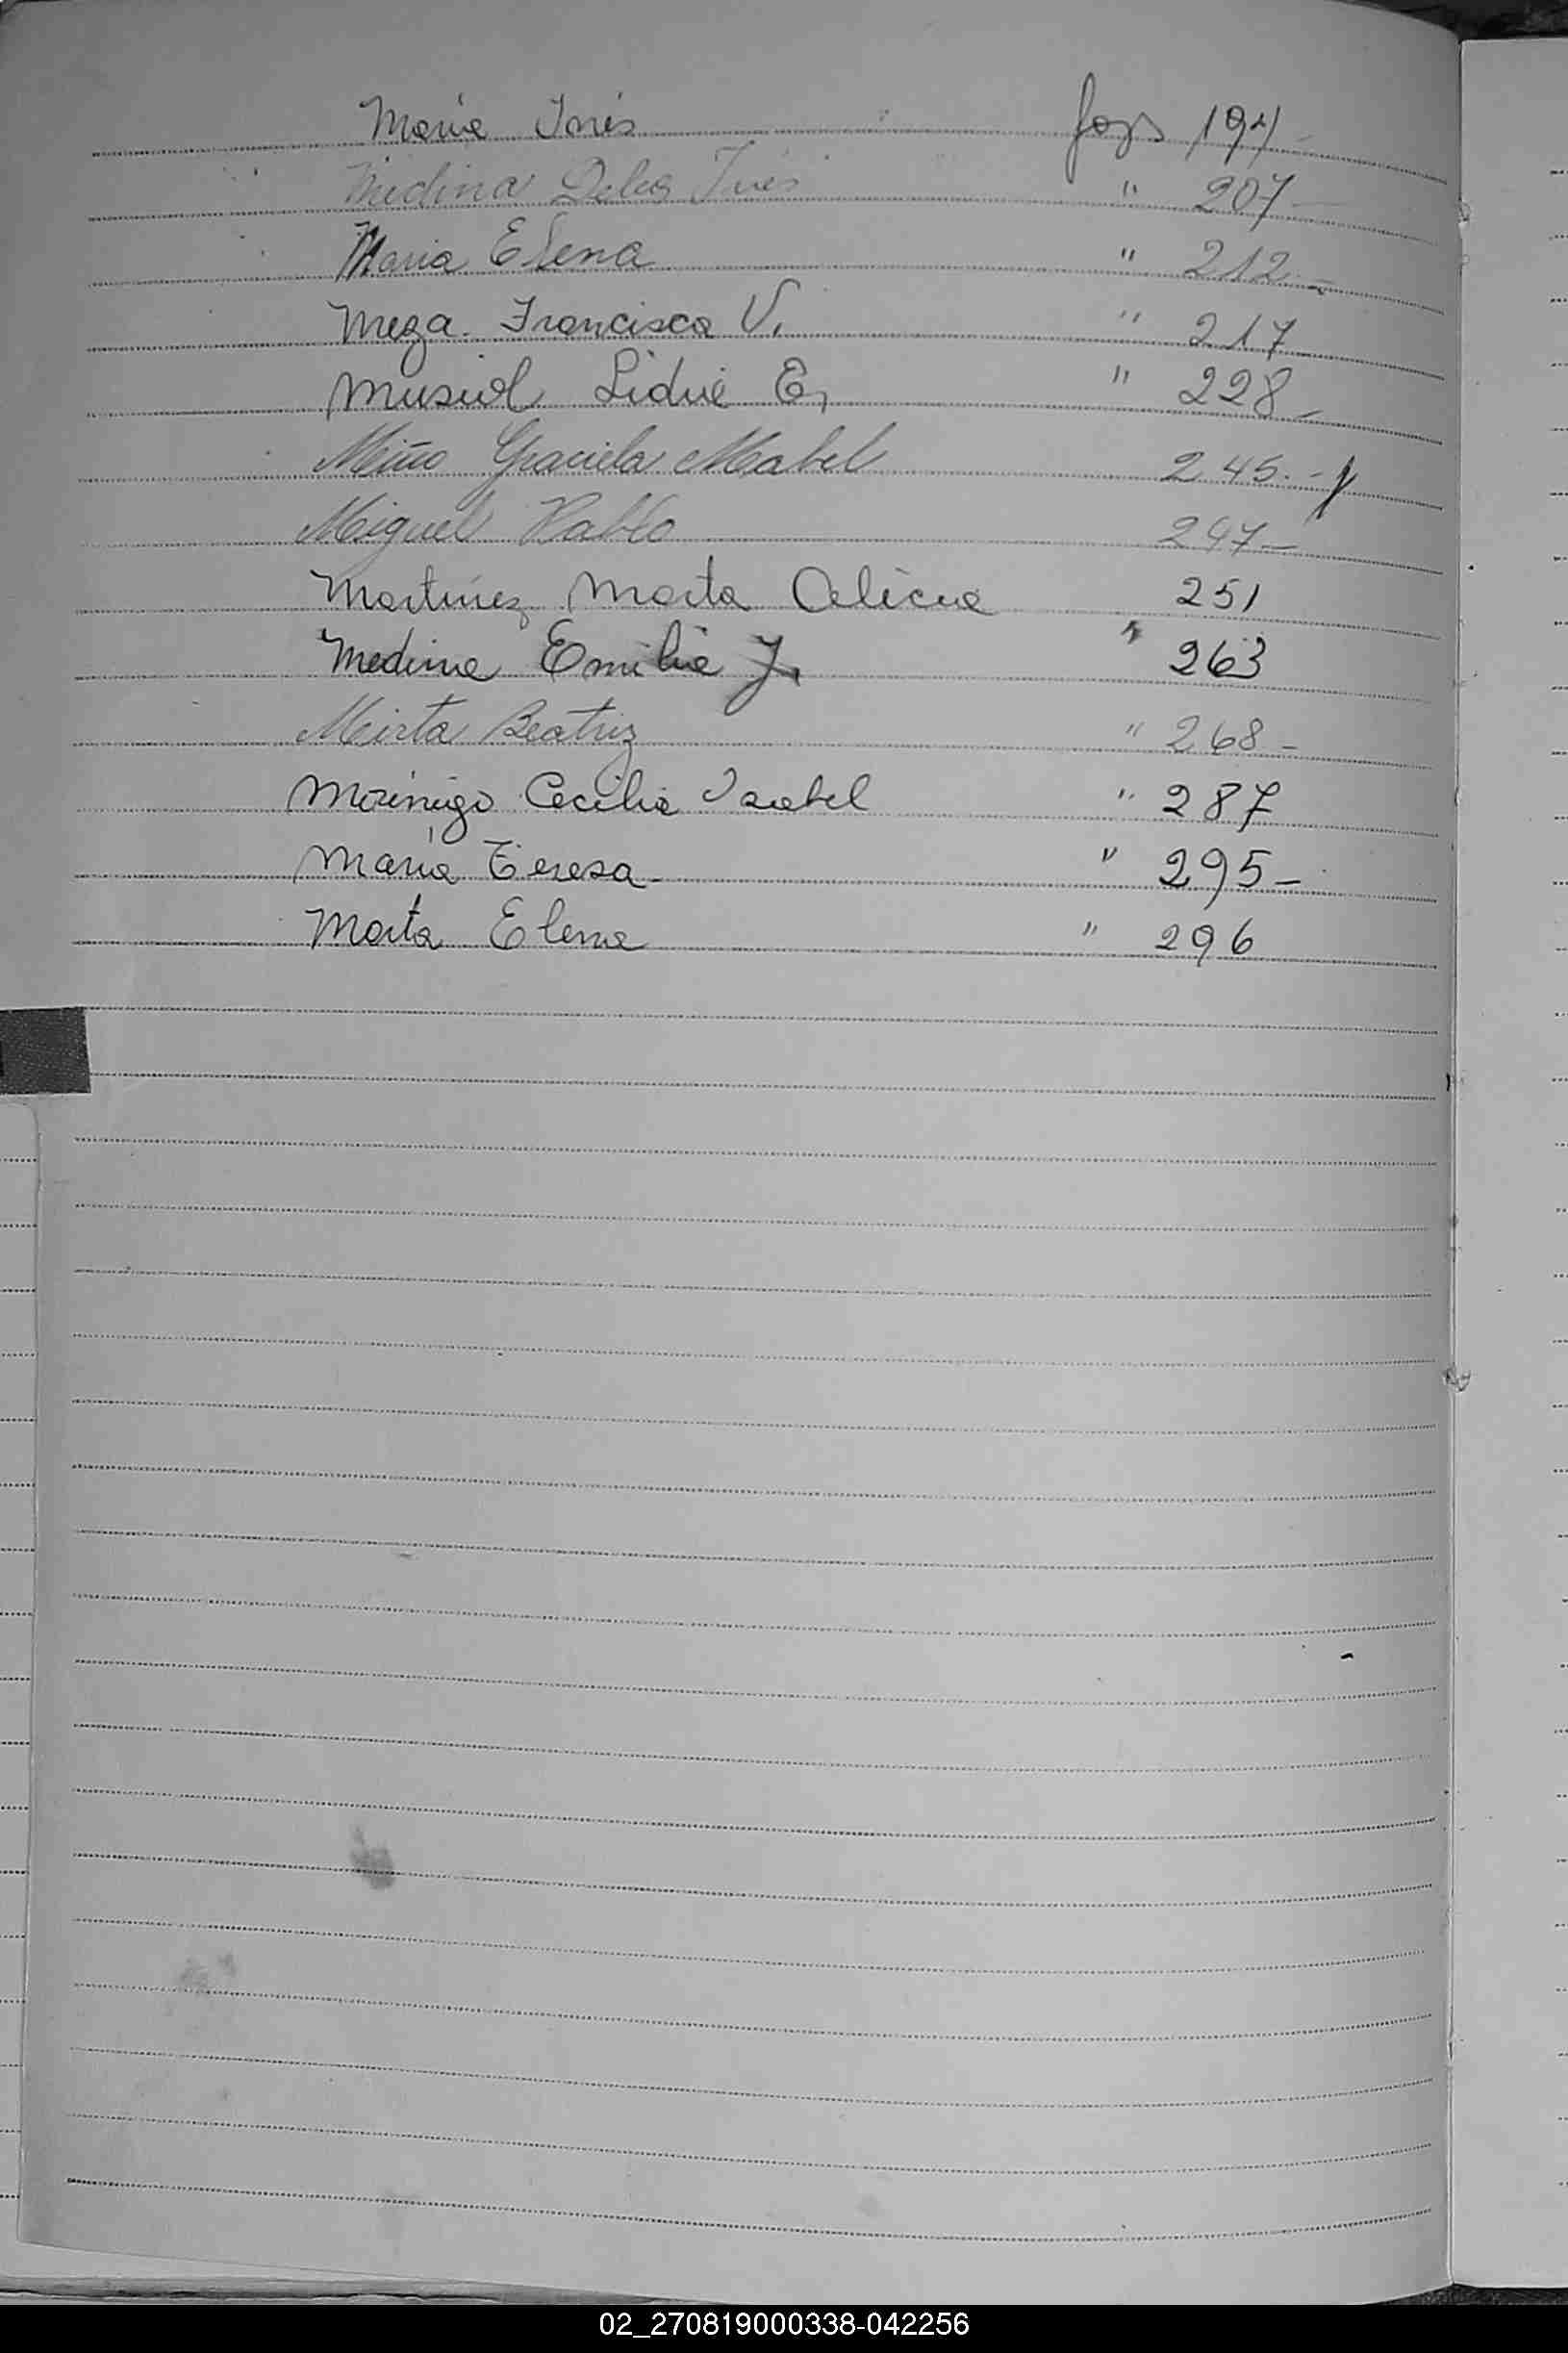 María Inés fojs 194
Medina Delia Inés " 207 –
Maria Elena " 212 –
Meza. Francisca V. " 217
Musiol Lidia E, " 228 –
Miño Graciela Mabel 245. –
Miguel Pablo 247 –
Martínez Marta Alicia 251
Medina Emilia J. " 263
Mirta Beatriz " 268 –
Morinigo Cecilia Isabel " 287
María Teresa – " 295 –
Marta Elena " 296
02_270819000338-042256